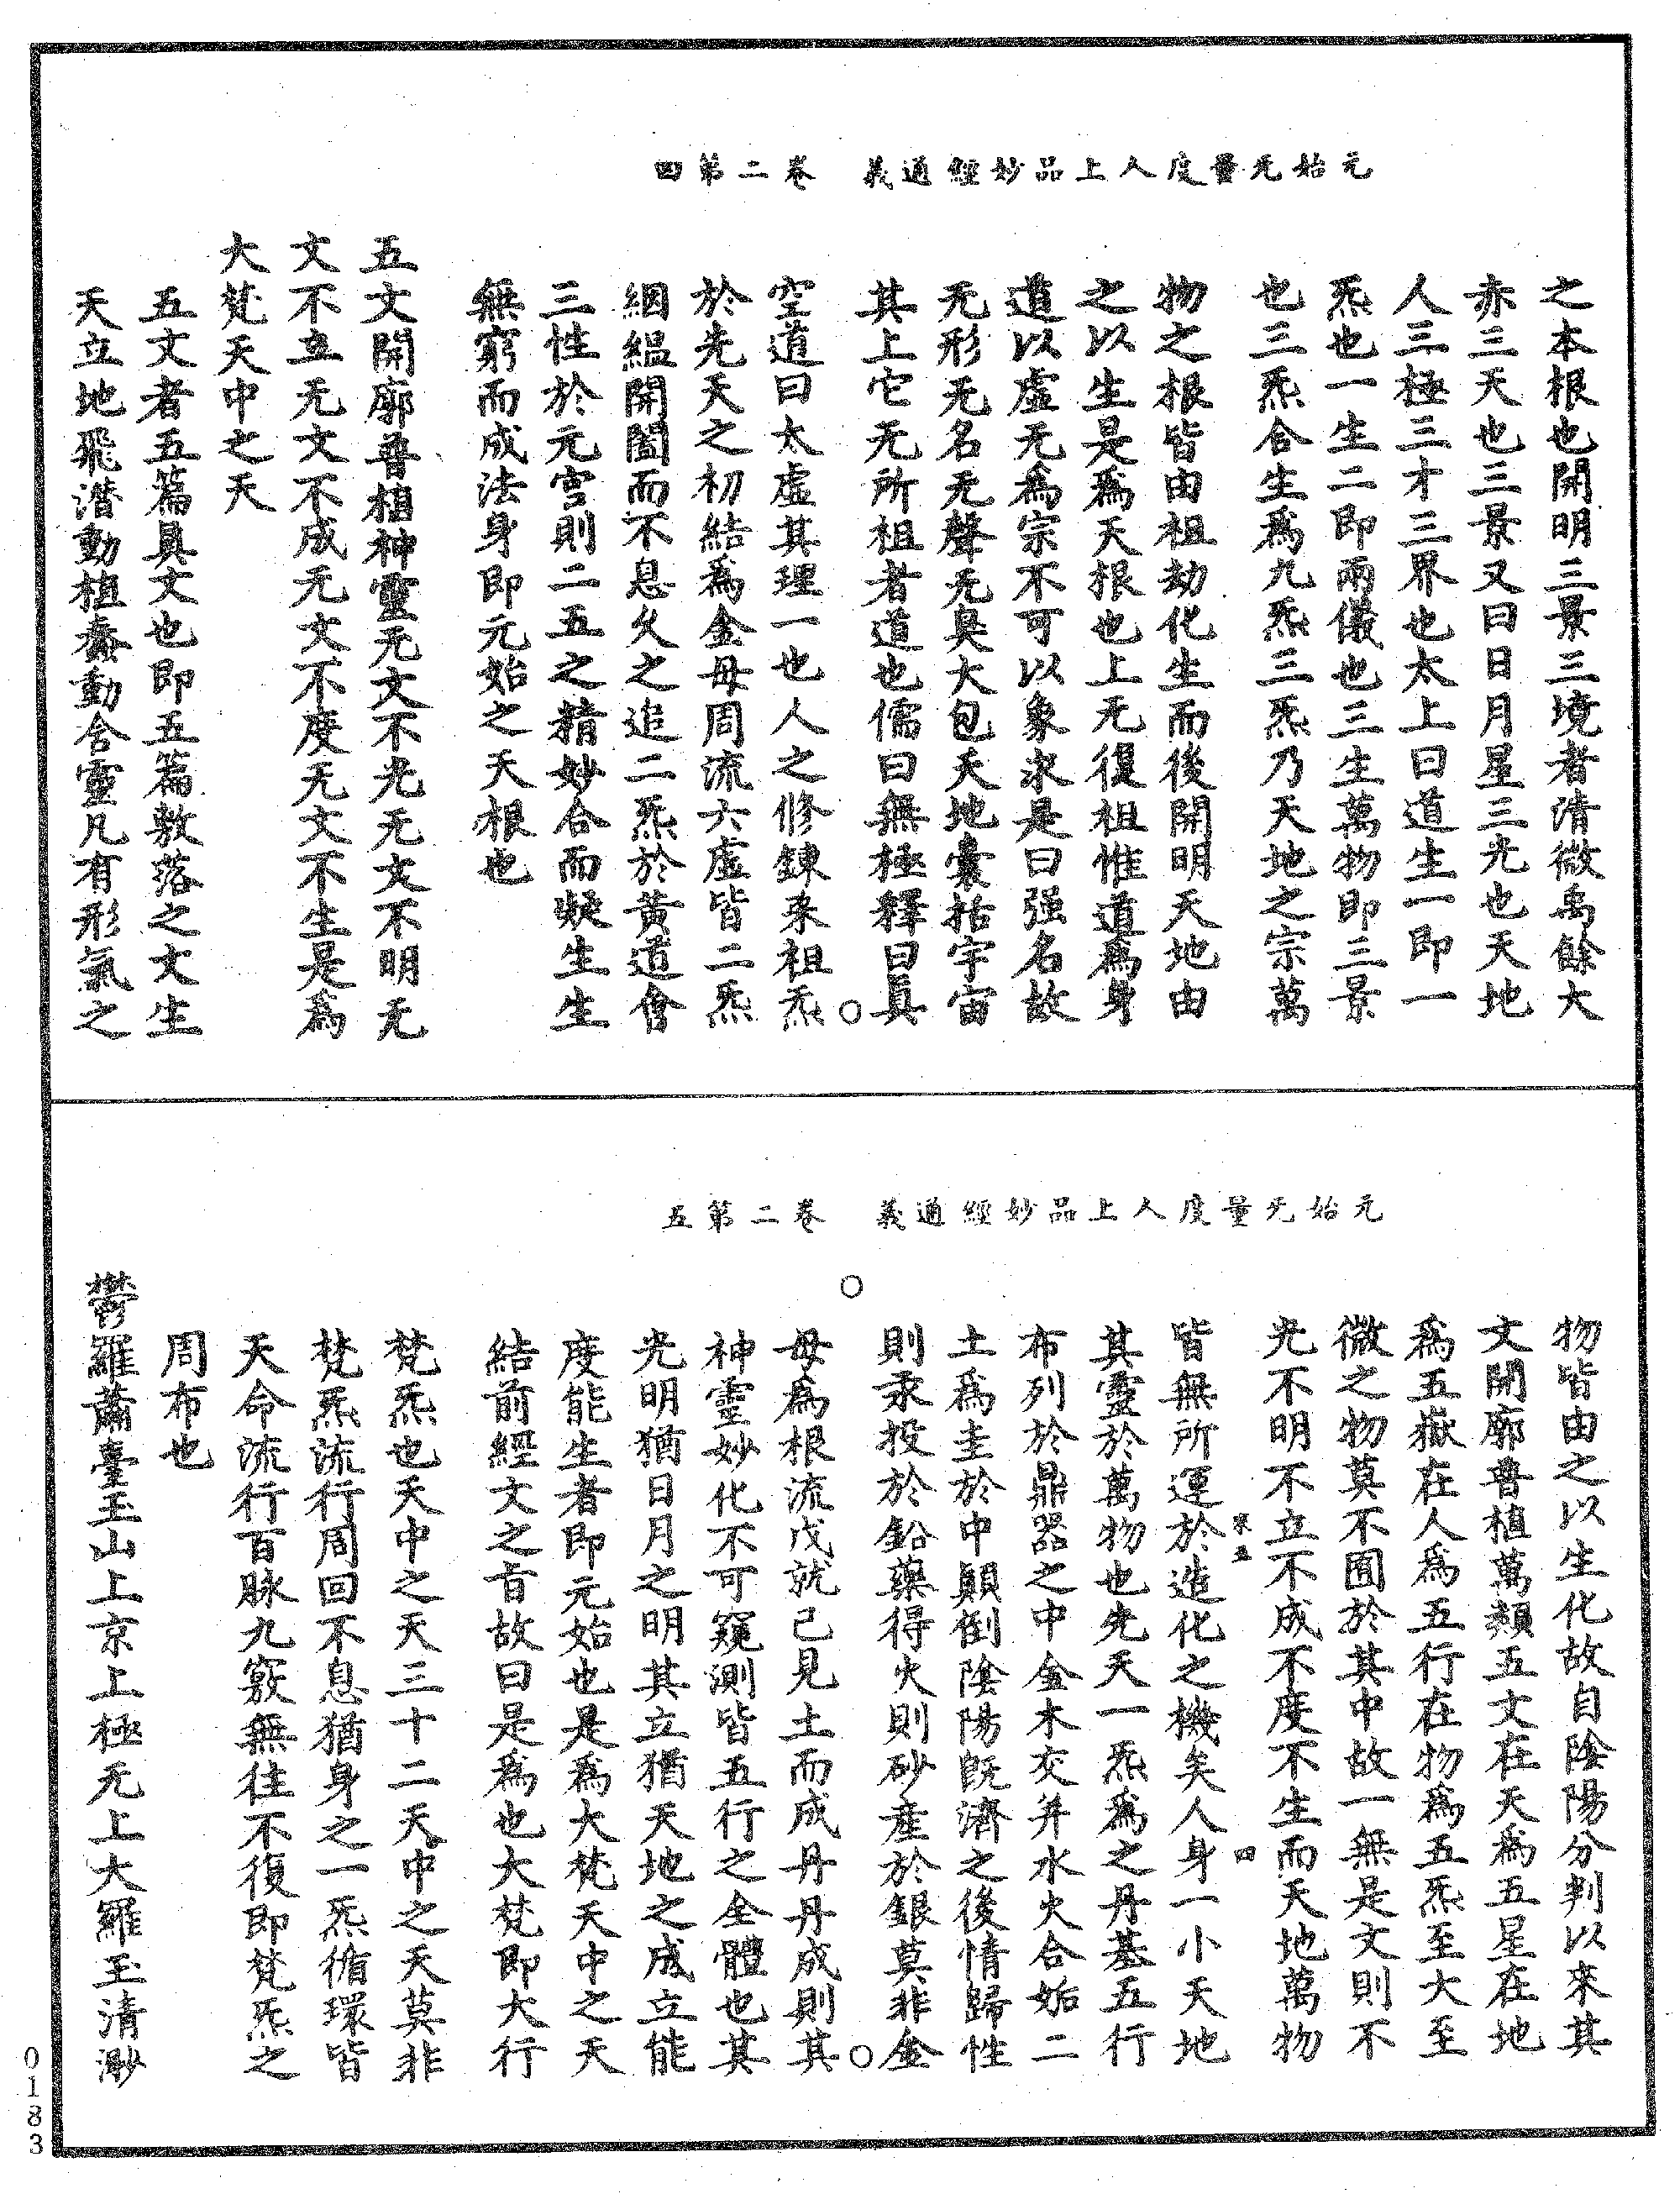 元始无量度人上品妙經通義　卷二第四
之本根也開明三景三境者清微禹餘大
赤三天也三景又曰日月星三光也天地
人三極三才三界也太上曰道生一即一
炁也一生二即兩儀也三生萬物即三景
也三炁合生為九炁三炁乃天地之宗萬
物之根皆由祖劫化生而後開明天地由
之以生是為天根也上无復祖惟道為身
道以虛无為宗不可以象求是曰强名故
无形无名无聲无臭大包天地囊括宇宙
其上它无所祖者道也儒曰無極釋曰真
空道曰太虛其理一也人之修鍊采祖炁
於先天之初結為金母周流六虛皆二炁
絪縕開闔而不息久之追二炁於黃道會
三性於元宮則二五之精妙合而凝生生
無窮而成法身即元始之天根也
五文開廓普植神靈无文不光无文不明无
文不立无文不成无文不度无文不生是為
大梵天中之天
五文者五篇真文也即五篇敷落之文生
天立地飛潛動植蠢動含靈凡有形氣之
元始无量度人上品妙經通義　卷二第五
物皆由之以生化故自陰陽分判以來其
文開廓普植萬類五文在天為五星在地
為五嶽在人為五行在物為五炁至大至
微之物莫不囿於其中故一無是文則不
光不明不立不成不度不生而天地萬物
皆無所運於造化之機矣人身一小天地
其靈於萬物也先天一炁為之丹基五行
布列於鼎器之中金木交并水火合姤二
土為圭於中顛倒陰陽既濟之後情歸性
則汞投於鉛藥得火則砂產於銀莫非金
母為根流戊就己見土而成丹丹成則其
神靈妙化不可窺測皆五行之全體也其
光明猶日月之明其立猶天地之成立能
度能生者即元始也是為大梵天中之天
結前經文之旨故曰是為也大梵即大行
梵炁也天中之天三十二天中之天莫非
梵炁流行周回不息猶身之一炁循環皆
天命流行百脉九竅無往不復即梵炁之
周布也
鬱羅蕭臺玉山上京上極无上大羅玉清渺
0183